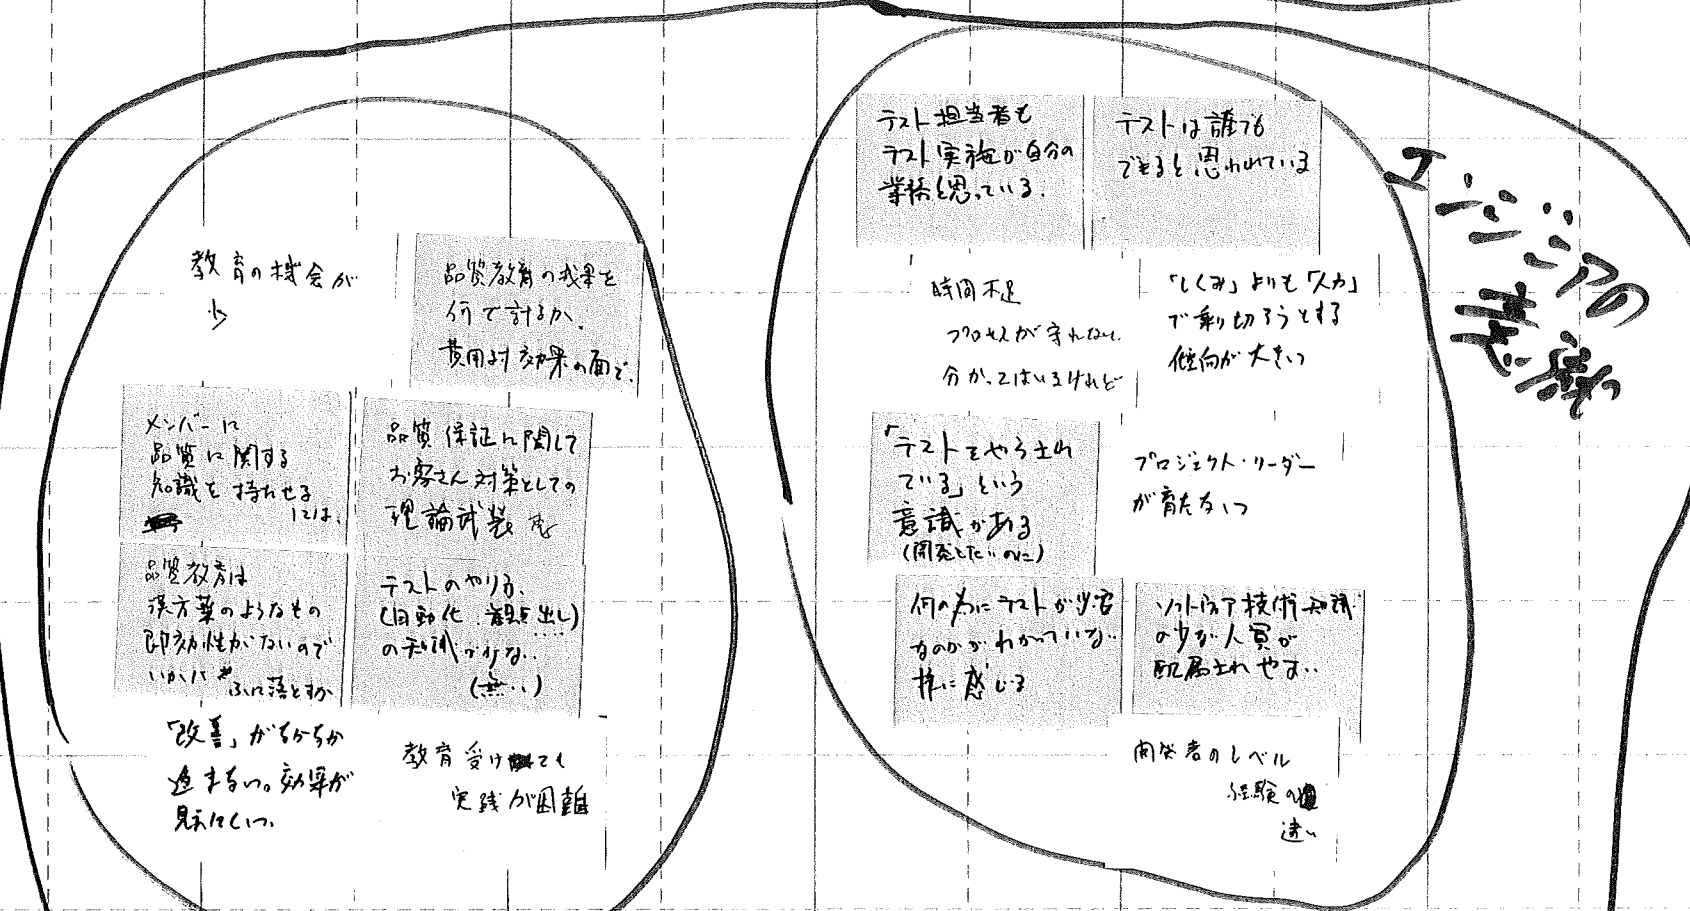 教育の機会が
少
品質教育の成果を
何で計るか、
費用対効果の面で、
メンバーに
品質に関する
知識を持たせる
には、
品質保証に関して
お客さん対策としての
理論武装を
品質教育は
漢方薬のようなもの
即効性がないので
いかに ふに落とすか
テストのやり方、
(自動化、観点出し)
の知識が少ない
(無い)
「改善」がなかなか
進まない。効果が
見えにくい。
教育受けても
実践が困難
テスト担当者も
テスト実施が自分の
業務と思っている.
テストは誰でも
できると思われている
時間不足
プロセスが守れない
分かってはいるけれど
「しくみ」よりも「人力」
で乗り切ろうとする
傾向が大きい
「テストをやらされ
ている」という
意識がある
(開発したいのに)
プロジェクト・リーダー
が育たない
何の為にテストが必要
なのかがわかっていない
様に感じる
ソフトウェア技術知識
の少ない人員が
配属されやすい
開発者のレベル
経験の
違い
エンジニアの
意識